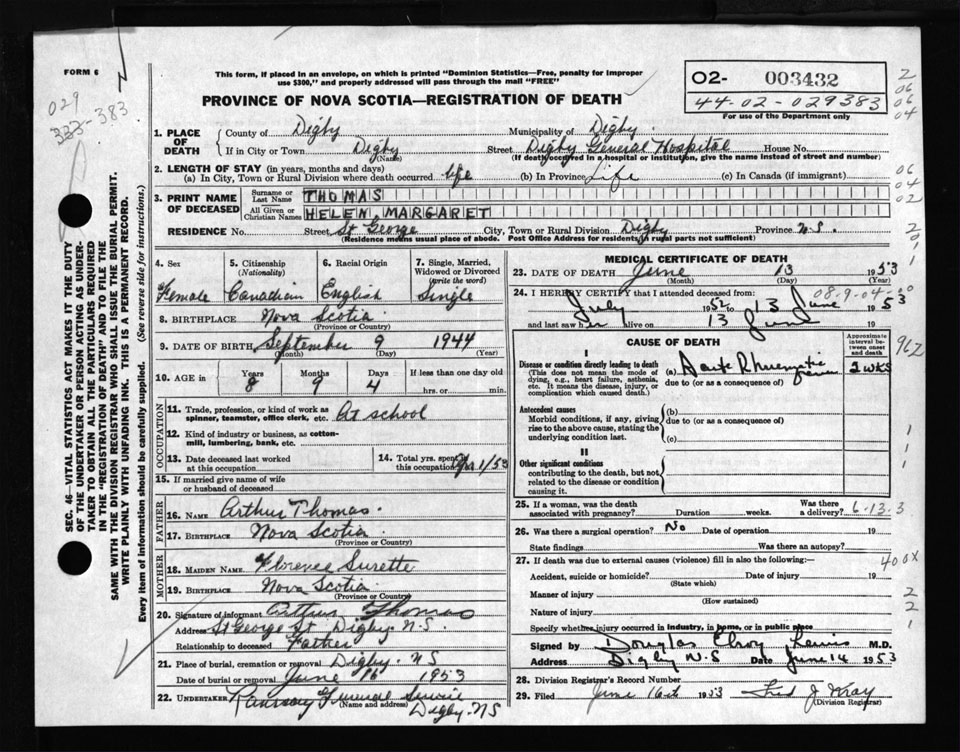 FORM 6
This form, if placed in an envelope, on which is printed "Dominion Statistics—Free, penalty for improper
use $300," and properly addressed will pass through the mail "FREE"
PROVINCE OF NOVA SCOTIA—REGISTRATION OF DEATH
02- 003432
44-02-029383
For use of the Department only
029
333-383
2
06
06
04
1. PLACE OF DEATH
County of Digby Municipality of Digby
If in City or Town Digby Street Digby General Hospital House No.
(Name) (If death occurred in a hospital or institution, give the name instead of street and number)
2. LENGTH OF STAY (in years, months and days)
(a) In City, Town or Rural Division where death occurred life (b) In Province Life (c) In Canada (if immigrant)
06
04
02
3. PRINT NAME OF DECEASED
Surname or Last Name THOMAS
All Given or Christian Names HELEN MARGARET
RESIDENCE No. Street St George City, Town or Rural Division Digby Province N.S.
(Residence means usual place of abode. Post Office Address for residents in rural parts not sufficient)
SEC. 46—VITAL STATISTICS ACT MAKES IT THE DUTY
OF THE UNDERTAKER OR PERSON ACTING AS UNDER-
TAKER TO OBTAIN ALL THE PARTICULARS REQUIRED
IN THE "REGISTRATION OF DEATH" AND TO FILE THE
SAME WITH THE DIVISION REGISTRAR WHO SHALL ISSUE THE BURIAL PERMIT.
WRITE PLAINLY WITH UNFADING INK. THIS IS A PERMANENT RECORD.
Every item of information should be carefully supplied. (See reverse side for instructions.)
4. Sex
Female
5. Citizenship
(Nationality)
Canadian
6. Racial Origin
English
7. Single, Married,
Widowed or Divorced
(write the word)
Single
8. BIRTHPLACE Nova Scotia
(Province or Country)
9. DATE OF BIRTH September 9 1944
(Month) (Day) (Year)
10. AGE in Years Months Days If less than one day old
8 9 4 hrs. or min.
OCCUPATION
11. Trade, profession, or kind of work as
spinner, teamster, office clerk, etc. At school
12. Kind of industry or business, as cotton-
mill, lumbering, bank, etc.
13. Date deceased last worked
at this occupation
14. Total yrs. spent
this occupation 1/53
15. If married give name of wife
or husband of deceased
FATHER
16. NAME Arthur Thomas.
17. BIRTHPLACE Nova Scotia
(Province or Country)
MOTHER
18. MAIDEN NAME Florence Surette
19. BIRTHPLACE Nova Scotia
(Province or Country)
20. Signature of informant Arthur Thomas
Address St George St Digby. N.S.
Relationship to deceased Father
21. Place of burial, cremation or removal Digby - NS
Date of burial or removal June 16 1953
22. UNDERTAKER Ramsay Funeral Service
(Name and address) Digby-NS
MEDICAL CERTIFICATE OF DEATH
23. DATE OF DEATH June 13 1953
(Month) (Day) (Year)
24. I HEREBY CERTIFY that I attended deceased from: 08-9-04-00
July 1952 to 13 June 1953
and last saw her alive on 13 June 19
CAUSE OF DEATH
Approximate
interval be-
tween onset
and death
962
I
Disease or condition directly leading to death (a) Acute Rheumatic 2 wks
(This does not mean the mode of
dying, e.g., heart failure, asthenia,
etc. It means the disease, injury, or
complication which caused death.)
due to (or as a consequence of)
Antecedent causes (b)
Morbid conditions, if any, giving
rise to the above cause, stating the
underlying condition last.
due to (or as a consequence of)
(c)
II
Other significant conditions
contributing to the death, but not
related to the disease or condition
causing it.
25. If a woman, was the death
associated with pregnancy? Duration weeks. Was there a delivery? 6-13-3
26. Was there a surgical operation? No Date of operation 19
State findings Was there an autopsy?
27. If death was due to external causes (violence) fill in also the following:— 400X
Accident, suicide or homicide? Date of injury 19
(State which)
Manner of injury
(How sustained)
Nature of injury
Specify whether injury occurred in industry, in home, or in public place
Signed by Douglas Elroy Lewis M.D.
Address Digby N.S Date June 14 1953
28. Division Registrar's Record Number
29. Filed June 16th 1953 Fred J Wray
(Division Registrar)